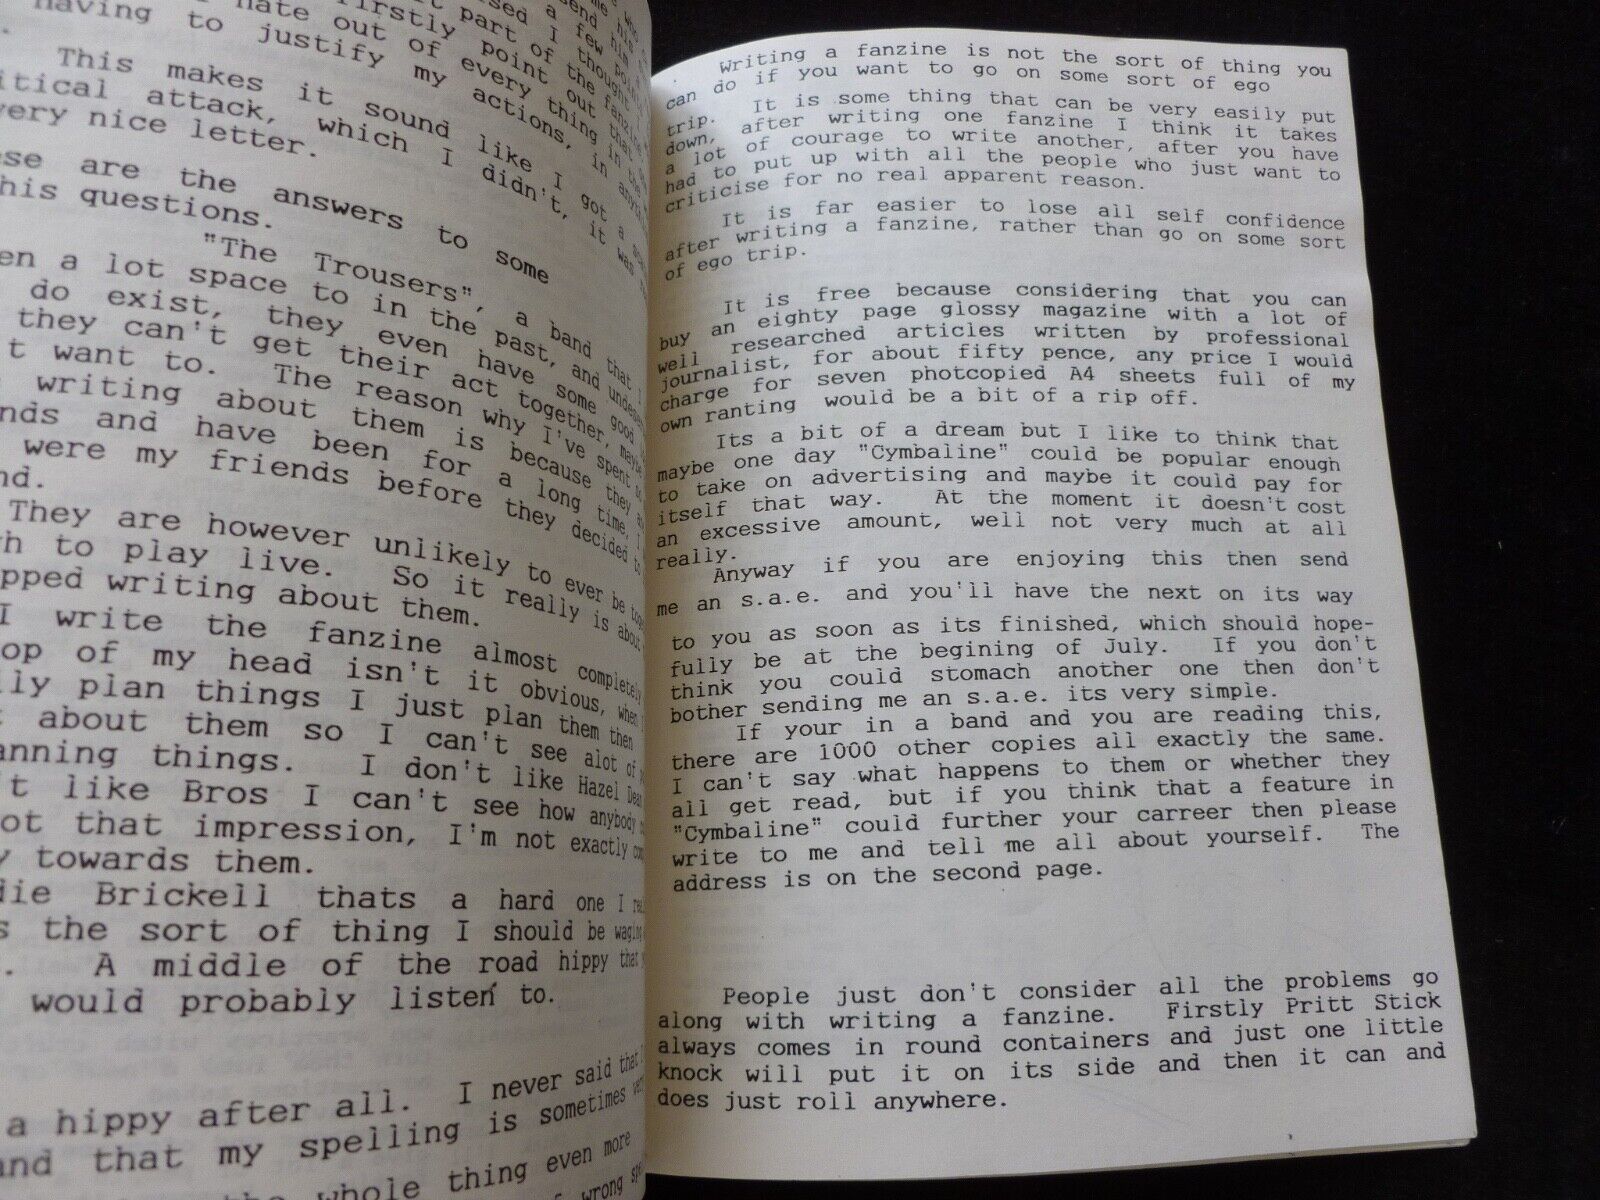 sed a few
send him
hate out of
Firstly point out that
part of the fanzine
having to justify my actions, in
every thing in the
I thought
This makes it sound like I got a
itical attack, which I didn't, it was
very nice letter.
ese are the answers to some
his questions.
"The Trousers", a band that I
en a lot space to in the past, and
do exist, they even have some good
they can't get their act together, maybe
't want to. The reason why I've spent so
writing about them is because they
nds and have been for a long time, I
were my friends before they decided to
nd.
They are however unlikely to ever be
gh to play live. So it really is about
pped writing about them.
I write the fanzine almost completely
op of my head isn't it obvious, when
lly plan things I just plan them then
t about them so I can't see alot of
anning things. I don't like Hazel Dean
't like Bros I can't see how anybody
ot that impression, I'm not exactly
y towards them.
die Brickell thats a hard one I
s the sort of thing I should be waging
. A middle of the road hippy that
would probably listen to.
a hippy after all. I never said that
and that my spelling is sometimes
the whole thing even more
wrong
Writing a fanzine is not the sort of thing you
can do if you want to go on some sort of ego
trip. It is some thing that can be very easily put
down, after writing one fanzine I think it takes
a lot of courage to write another, after you have
had to put up with all the people who just want to
criticise for no real apparent reason.
It is far easier to lose all self confidence
after writing a fanzine, rather than go on some sort
of ego trip.
It is free because considering that you can
buy an eighty page glossy magazine with a lot of
well researched articles written by professional
journalist, for about fifty pence, any price I would
charge for seven photcopied A4 sheets full of my
own ranting would be a bit of a rip off.
Its a bit of a dream but I like to think that
maybe one day "Cymbaline" could be popular enough
to take on advertising and maybe it could pay for
itself that way. At the moment it doesn't cost
an excessive amount, well not very much at all
really.
Anyway if you are enjoying this then send
me an s.a.e. and you'll have the next on its way
to you as soon as its finished, which should hope-
fully be at the begining of July. If you don't
think you could stomach another one then don't
bother sending me an s.a.e. its very simple.
If your in a band and you are reading this,
there are 1000 other copies all exactly the same.
I can't say what happens to them or whether they
all get read, but if you think that a feature in
"Cymbaline" could further your carreer then please
write to me and tell me all about yourself. The
address is on the second page.
People just don't consider all the problems go
along with writing a fanzine. Firstly Pritt Stick
always comes in round containers and just one little
knock will put it on its side and then it can and
does just roll anywhere.